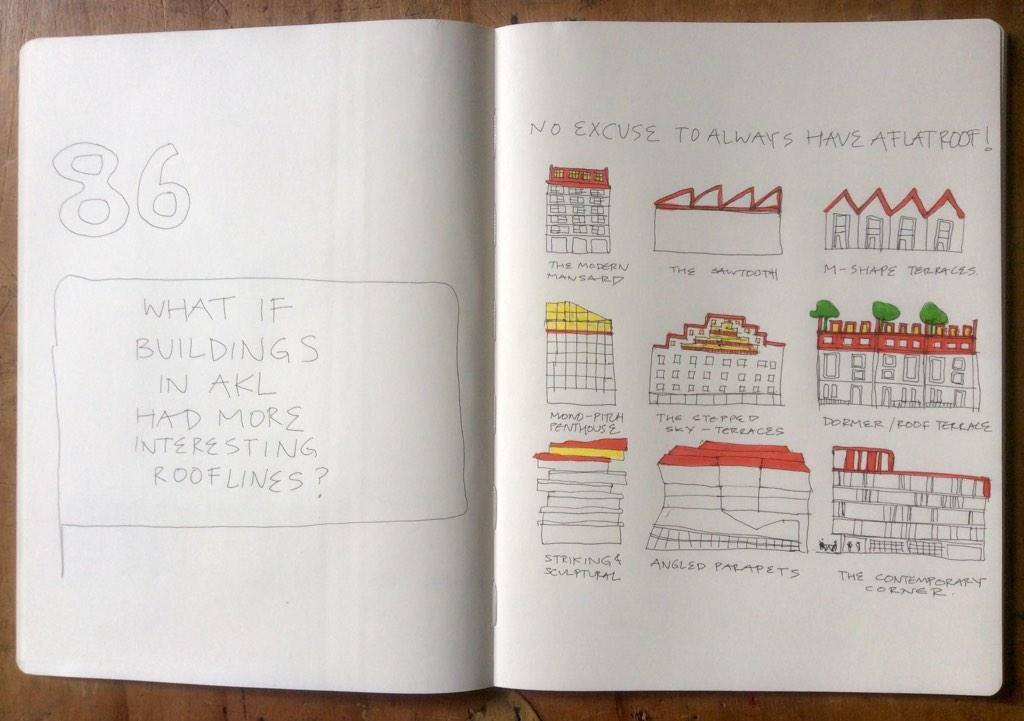 86
WHAT IF
BUILDINGS
IN AKL
HAD MORE
INTERESTING
ROOFLINES?
NO EXCUSE TO ALWAYS HAVE A FLAT ROOF!
THE MODERN
MANSARD
THE SAWTOOTH
M-SHAPE TERRACES.
MONO-PITCH
PENTHOUSE
THE STEPPED
SKY-TERRACES
DORMER/ROOF TERRACE
STRIKING &
SCULPTURAL
ANGLED PARAPETS
THE CONTEMPORARY
CORNER.